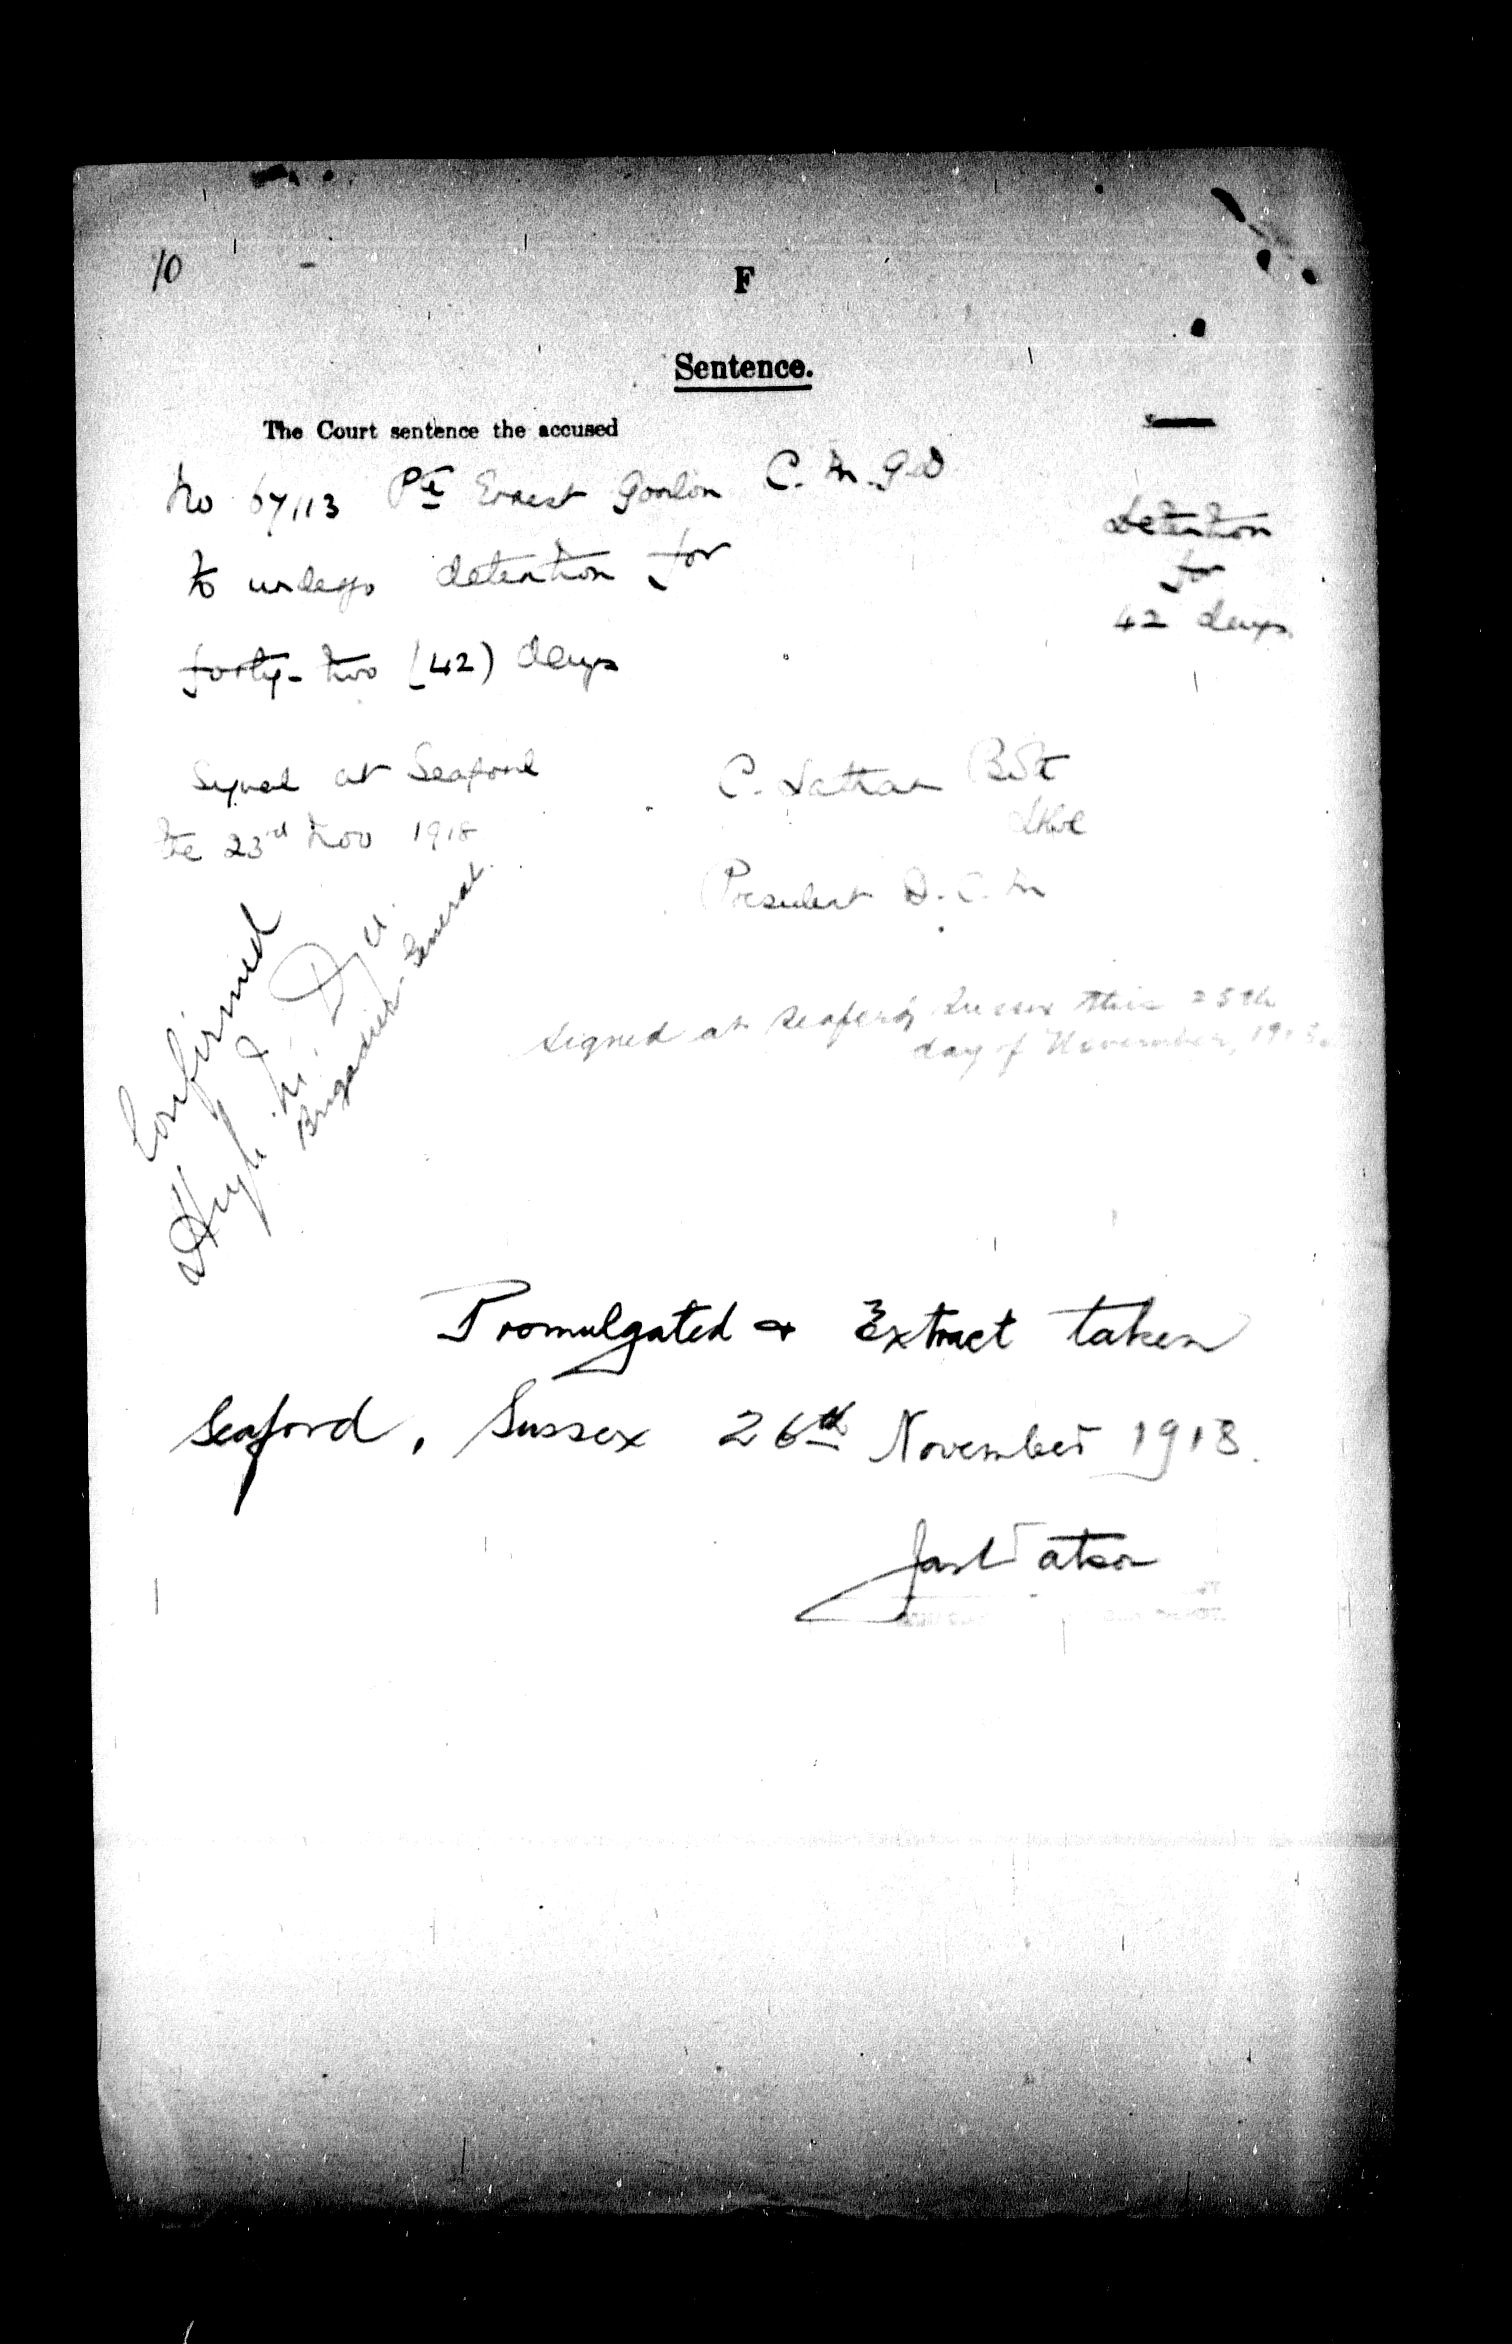 10
F
Sentence.
The Court sentence the accused
No 67113 Pte Ernest Gordon C.M.G.D
to undergo detention for
forty-two (42) days
detention
for
42 days
Signed at Seaford
the 23rd Nov 1918
C.
President D.C.M
Confirmed
Hugh M. Dyer
Brigadier-General.
Signed at Seaford, Sussex this 25th
day of November, 1918.
Promulgated & Extract taken
Seaford, Sussex 26th November 1918.
Jas Watson